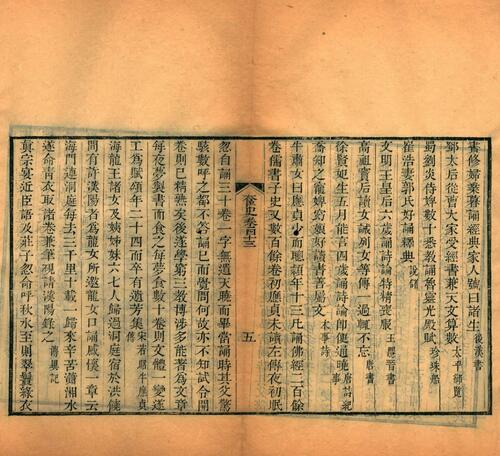 書修婦業暮誦經典家人號曰諸生後漢書
鄧太后從曹大家受經書兼天文算數太平御覽
蜀劉炎侍婢數十悉教誦魯靈光殿賦珍珠船
崔浩妻郭氏好誦釋典說儲
文明王皇后六歲誦詩論特精喪服王隱晉書
高祖竇后讀女誡列女等傳一過輒不忘唐書
徐賢妃生五月能言四歲誦詩論卽便通曉唐詩紀事
喬知之寵婢窈娘好讀書善屬文本事詩
牛肅女曰應貞少而聰穎年十三凡誦佛經二百餘
卷儒書子史又數百餘卷初應貞未讀左傳夜初眠
奩史卷四十三
五
忽自誦三十卷一字無遺天曉而畢當誦時其父驚
駭數呼之都不荅誦已而覺問何故亦不知試令開
卷則已精熟矣後遂學窮三教博涉多能著爲文章
每夜夢與書而食之每夢食數十卷則文體一變遂
工爲賦頌年二十四而卒有遺芳集宋若昭牛應貞傳
海龍王諸女及姨姊妹六七人歸過洞庭宿於洪饒
間有許漢陽者爲龍女所邀龍女口誦感懷一章云
海門連洞庭每去三千里十載一歸來辛苦瀟湘水
遂命青衣取諸卷兼筆硯請漢陽錄之博異記
眞宗宴近臣語及莊子忽命呼秋水至則翠鬟綠衣